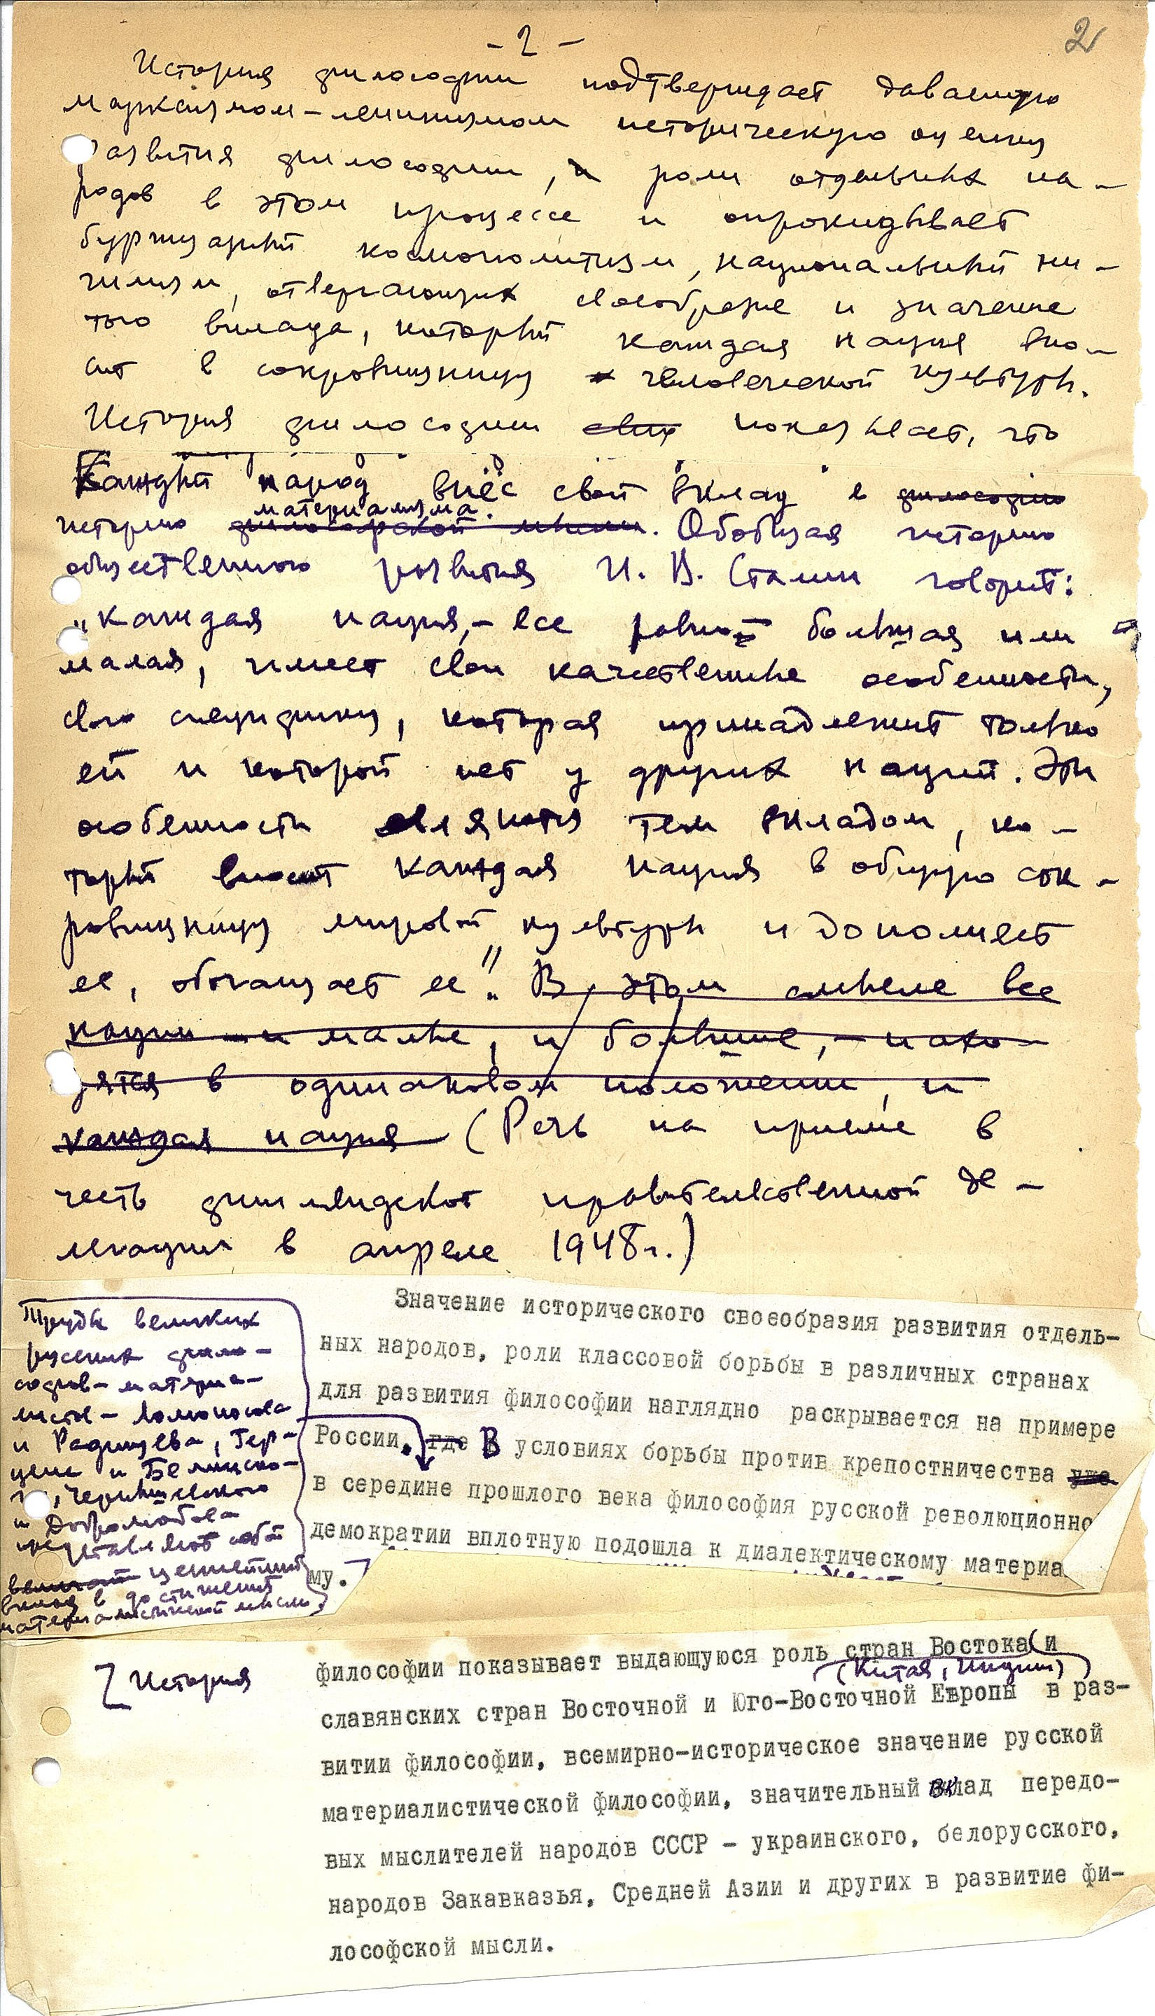 - 2 -
2
История философии подтверждает даваемую
марксизмом-ленинизмом историческую оценку
развития философии, и роли отдельных на-
родов в этом процессе и опрокидывает
буржуазный космополитизм, национальный ни-
гилизм, отвергающих своеобразие и значение
того вклада, который каждая нация вно-
сит в сокровищницу человеческой культуры.
История философии показывает, что
Каждый народ внёс свой вклад в философию
материализма.
историю философской мысли. Обобщая историю
общественного развития И. В. Сталин говорит:
„Каждая нация,- все равно большая или
малая, имеет свои качественные особенности,
свою специфику, которая принадлежит только
ей и которой нет у других наций. Эти
особенности являются тем вкладом, ко-
торый вносит каждая нация в общую сок-
ровищницу мировой культуры и дополняет
ее, обогащает ее". В этом смысле все
нации - и малые, и большие, - нахо-
дятся в одинаковом положении, и
каждая нация (Речь на приеме в
честь финляндской правительственной де-
легации в апреле 1948 г.)
Труды великих
русских фило-
софов-материа-
листов - Ломоносова
и Радищева, Гер-
цена и Белинско-
го, Чернышевского
и Добролюбова
представляют собой
ценнейший
вклад в достижения
материалистической мысли
Значение исторического своеобразия развития отдель-
ных народов, роли классовой борьбы в различных странах
для развития философии наглядно раскрывается на примере
России. где В условиях борьбы против крепостничества уже
в середине прошлого века философия русской революционно
демократии вплотную подошла к диалектическому материа
му.
История
философии показывает выдающуюся роль стран Востока и
(Китая, Индии)
славянских стран Восточной и Юго-Восточной Европы в раз-
витии философии, всемирно-историческое значение русской
материалистической философии, значительный вклад передо-
вых мыслителей народов СССР - украинского, белорусского,
народов Закавказья, Средней Азии и других в развитие фи-
лософской мысли.